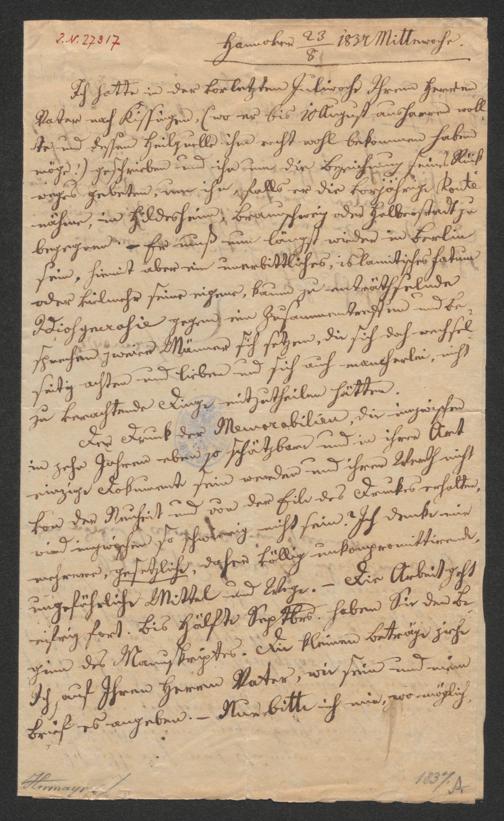 I. N. 27317
Hannover 23/8 1837 Mittwoche.
Ich hatte in der vorletzten Juliwoche Ihrem Herrn
Vater nach Kissingen, (wo er bis 10 August ausharren woll-
te und dessen Heilquelle ihm recht wohl bekommen haben
möge!) geschrieben und ihn um die Bezeichnung seines Rück-
weges gebeten, um ihm, falls er die vorjährige Route
nähme, in Hildesheim, Braunschweig oder Halberstadt zu
begegnen. – Er muß nun längst wieder in Berlin
sein, hiemit aber ein unerbittliches, islamitisches Fatum
oder vielmehr seine eigene, kaum zu enträthselnde
Idiosyncrasie gegen ein Zusammentreffen und Be-
sprechen zweier Männer sich setzen, die sich doch wechsel-
seitig achten und lieben und sich auch mancherlei, nicht
zu verachtende Dinge mitzutheilen hätten.
Der Druck der Memorabilien, die inzwischen
in zehn Jahren eben so schätzbare und in ihrer Art
einzige Dokumente sein werden und ihren Werth nicht
von der Neuheit und von der Eile des Druckes erhalten,
wird inzwischen so schwierig nicht sein? Ich denke mir
mehrere, gesetzliche, daher völlig unkompromittirende,
ungefährliche Mittel und Wege. – Die Arbeit geht
eifrig fort. Bis Hälfte Septbrs. haben Sie den Be-
ginn des Manuskriptes. Die kleinen Beträge ziehe
Ich auf Ihren Herrn Vater, wie sein und mein
Brief es angeben. – Nur bitte ich mir, wo möglich
Hormayr
1837. A